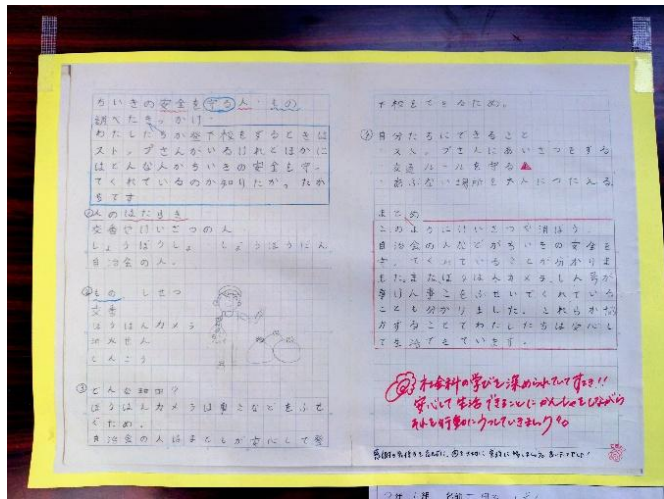 ちいきの安全を守る人・もの
調べたきっかけ
わたしたちが登下校をするときは
ストップさんがいるけれどほかに
はどんな人がちいきの安全を守っ
てくれているのか知りたかったか
らです
①人のはたらき
交番やけいさつの人
しょうぼうしょ しょうぼうだん
自治会の人。
②もの しせつ
交番
ぼうはんカメラ
消火せん
しんごう
③どんな理由?
ぼうはんカメラは事こなどをふせ
ぐため。
自治会の人はまちが安心して登
下校をできるため。
自分たちにできること
・ストップさんにあいさつをする
交通ルールを守る
・あぶない場所を人につたえる
まとめ
このようにけいさつや消ぼう、
自治会の人などがちいきの安全を
てくれていることが分かりま
した。またぼうはんカメラ、しん号が
事けん事こをふせいでくれている
ことも分かりました。これらが協
力することでわたしたちは安心し
て生活できています。
社会科の学びを深められていてすてき!!
安心して生活できることにかんしゃをしながら
それを行動にうつしていきましょう